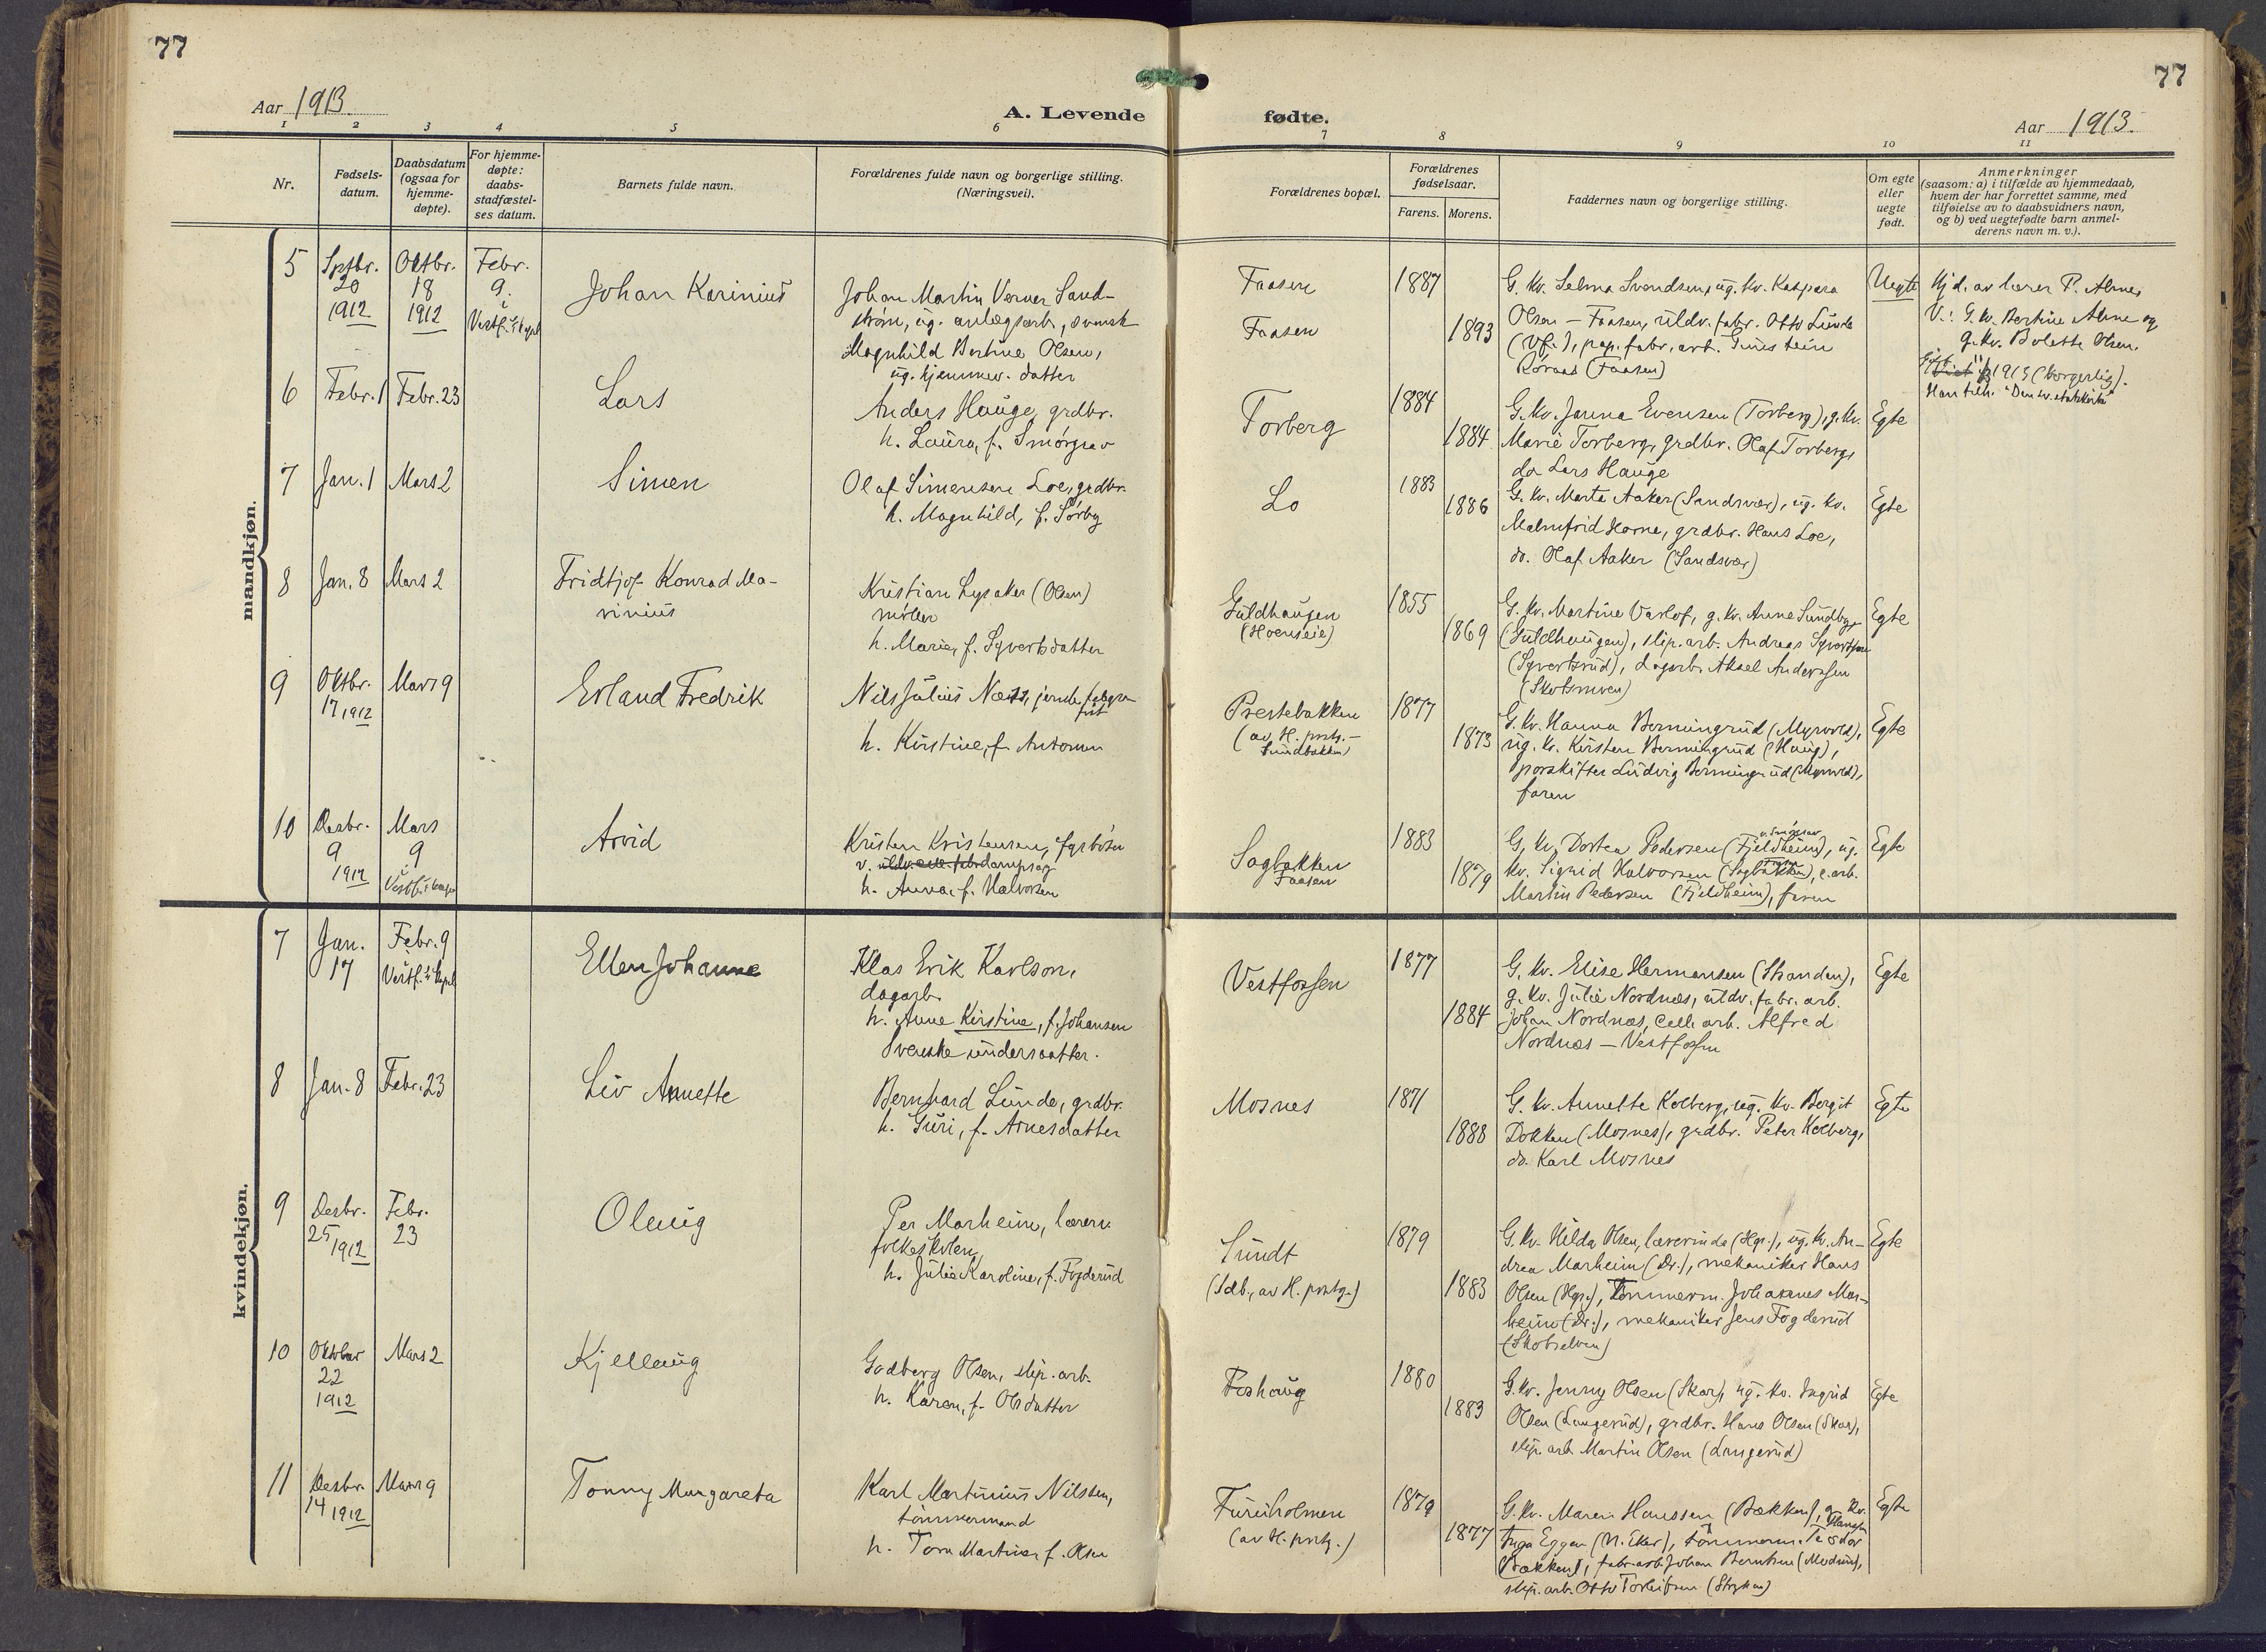 77
77
Aar 1913.
A. Levende
fødte.
Aar 1913.
1 2 3 4 5 6 7 8 9 10 11
Nr.
Fødsels-
datum.
Daabsdatum
(ogsaa for
hjemme-
døpte).
For hjemme-
døpte:
daabs-
stadfæstel-
ses datum.
Barnets fulde navn.
Forældrenes fulde navn og borgerlige stilling.
(Næringsvei).
Forældrenes bopæl.
Forældrenes
fødselsaar.
Farens. Morens.
Faddernes navn og borgerlige stilling.
Om egte
eller
uegte
født.
Anmerkninger
(saasom: a) i tilfælde av hjemmedaab,
hvem der har forrettet samme, med
tilføielse av to daabsvidners navn,
og b) ved uegtefødte barn anmel-
derens navn m. v.).
mandkjøn.
5
Septbr.
20
1912
Oktbr.
18
1912
Febr.
9.
i
Vestf.s kapel
Johan Karinius
Johan Martin Verner Sand-
strøm, ug. anlægsarb., svensk
Magnhild Bertine Olsen,
ug. hjemmev. datter
Faasen
Faasen
1887
1893
G. kv. Selma Svendsen, ug. kv. Kaspara
Olsen — Faasen, uldv. fabr. Otto Lunde
(Vf.), pap. fabr. arb. Einestein
Roraas (Faasen)
Uegte
Hjd. av lærer P. Alme,
V.: G. kv. Bertine Alme og
g. kv. Bolette Olsen.
1913 (borgerlig).
Han tilh. "Den sv. statskirke"
6
Febr. 1
Febr. 23
Lars
Anders Hauge, grdbr.
h. Laura, f. Smørgrav
Torberg
1884
1884
G. kv. Janna Evensen (Torberg), g. kv.
Marie Torberg, grdbr. Olaf Torberg,
do Lars Hauge
Egte
7
Jan. 1
Mars 2
Simen
Olaf Simensen Loe, grdbr.
h. Magnhild, f. Sørby
Lo
1883
1886
G. kv. Marte Aaker (Sandsvær), ug. kv.
Malmfrid Horne, grdbr. Hans Loe,
do. Olaf Aaker (Sandsvær)
Egte
8
Jan. 8
Mars 2
Fridtjof Konrad Ma-
rinius
Kristian Lysaker (Olsen)
møller
h. Marie, f. Syvertsdatter
Guldhaugen
(Hoenseie)
1855
1869
G. kv. Martine Varlof, g. kv. Anne Sundby
(Guldhaugen), slip. arb. Andreas Syvertsen
(Syvertsrud), dagarb. Aksel Anderssen
(Skotsmoen)
Egte
9
Oktbr.
17 1912
Mars 9
Erland Fredrik
Nils Julius Næss, jernb. telegra-
fist
h. Kirstine, f. Antonsen
Prestebakken
(av H. prstg. —
Sundbakken)
1877
1873
G. kv. Hanna Bermingrud (Myrvold),
ug. kv. Kirsten Bermingrud (Haug),
sporskifter Ludvig Bermingrud (Myrvold),
faren
Egte
10
Desbr.
9
1912
Mars
9
i
Vestf.s kapel
Arvid
Kristen Kristensen, fyrbøter
v. dampsag
h. Anna, f. Halvorsen
Sagbakken
Faasen
1883
1879
G. kv. Dortea Pedersen (Fjeldheim), ug.
v. Smørgrav
kv. Sigrid Halvorsen (Sagbakken), c. arb.
Martin Pedersen (Fjeldheim), faren
Egte
kvindekjøn.
7
Jan.
17
Febr. 9
i
Vestf.s kapel
Ellen Johanne
Klas Erik Karlson,
dagarb.
h. Anne Kirstine, f. Johansen
Svenske undersaatter.
Vestfossen
1877
1884
G. kv. Elise Hermansen (Stranden),
g. kv. Julie Nordnæs, uldv. fabr. arb.
Johan Nordnæs, cell. arb. Alfred
Nordnæs — Vestfossen
Egte
8
Jan. 8
Febr. 23
Liv Annette
Bernhard Lunde, grdbr.
h. Guri, f. Arnesdatter
Mosnes
1871
1888
G. kv. Annette Kolberg, ug. kv. Bergit
Dokken (Mosnes), grdbr. Peter Kolberg,
do. Karl Mosnes
Egte
9
Desbr.
25 1912
Febr.
23
Olaug
Per Marheim, lærer v.
folkeskolen,
h. Julie Karoline, f. Fogderud
Sundt
(Sdb., av H. prstg.)
1879
1883
G. kv. Hilda Olsen, lærerinde (Hgs.), ug. kv. An-
drea Marheim (Dr.), mekaniker Hans
Olsen (Hgs.), Tømmerm. Johannes Mar-
heim (Dr.), mekaniker Jens Fogderud
(Skotselven)
Egte
10
Oktober
22
1912
Mars 2
Kjellaug
Godberg Olsen, slip. arb.
h. Karen, f. Olsdatter
Foshaug
1880
1883
G. kv. Jenny Olsen (Skar), ug. kv. Ingrid
Olsen (Langerud), grdbr. Hans Olsen (Skar),
slip. arb. Martin Olsen (Langerud)
Egte
11
Desbr.
14 1912
Mars 9
Tonny Margareta
Karl Martinius Nilssen,
tømmermand
h. Tora Martine, f. Olsen
Furuholmen
(av H. prstg.)
1879
1877
G. kv. Maren Hanssen (Bækken), g. kv.
Inga Eggen (N. Eker), tømmerm. Teodor Hanssen
(Bækken), fabr. arb. Johan Berntsen (Modum),
slip. arb. Otto Torleifsen (Stryken)
Egte